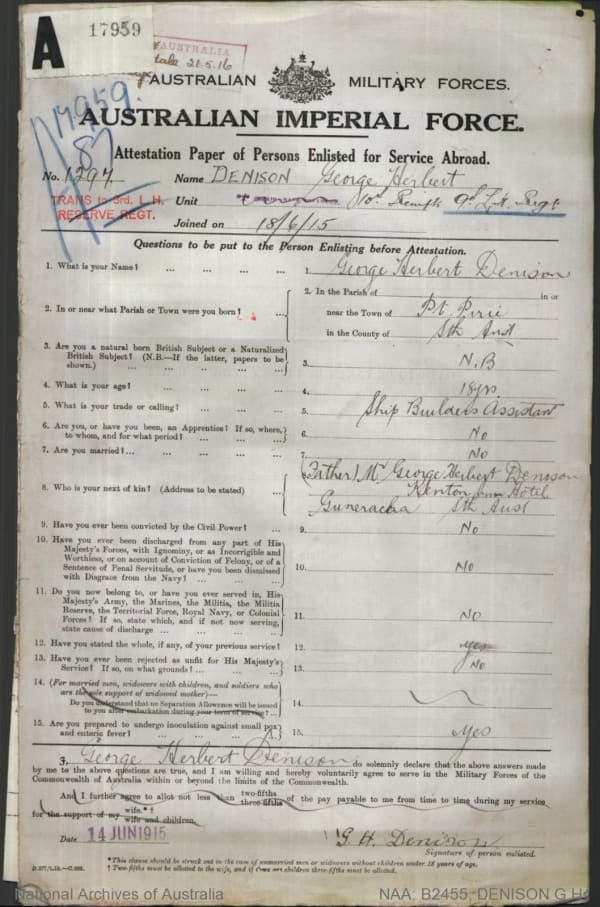 A 17959
AUSTRALIA
21.5.16
17959
AUSTRALIAN MILITARY FORCES.
AUSTRALIAN IMPERIAL FORCE.
Attestation Paper of Persons Enlisted for Service Abroad.
No. 1297. Name DENISON George Herbert
TRANS to 3rd. L.H. RESERVE REGT.
Unit 10th Reinfts 9th L.H. Regt
Joined on 18/6/15
Questions to be put to the Person Enlisting before Attestation.
1. What is your Name? ... ... ... ... 1. George Herbert Denison
2. In or near what Parish or Town were you born? ...
2. In the Parish of in or
near the Town of Pt Pirie
in the County of Sth Aust
3. Are you a natural born British Subject or a Naturalized
British Subject? (N.B.—If the latter, papers to be
shown.) ... ... ... ... ... 3. N.B
4. What is your age? ... ... ... ... 4. 18 yrs
5. What is your trade or calling? ... ... ... 5. Ship Builders Assistant
6. Are you, or have you been, an Apprentice? If so, where,
to whom, and for what period? ... ... ... 6. No
7. Are you married? ... ... ... ... 7. No
8. Who is your next of kin? (Address to be stated) ...
(Father) Mr George Herbert Denison
8. Kenton Hotel
Guneracha Sth Aust
9. Have you ever been convicted by the Civil Power? ... 9. No
10. Have you ever been discharged from any part of His
Majesty's Forces, with Ignominy, or as Incorrigible and
Worthless, or on account of Conviction of Felony, or of a
Sentence of Penal Servitude, or have you been dismissed
with Disgrace from the Navy? ... ... ... 10. No
11. Do you now belong to, or have you ever served in, His
Majesty's Army, the Marines, the Militia, the Militia
Reserve, the Territorial Force, Royal Navy, or Colonial
Forces? If so, state which, and if not now serving,
state cause of discharge ... ... ... ... 11. No
12. Have you stated the whole, if any, of your previous service? 12. yes
13. Have you ever been rejected as unfit for His Majesty's
Service? If so, on what grounds? ... ... 13. No
14. (For married men, widowers with children, and soldiers who
are the sole support of widowed mother)—
Do you understand that no Separation Allowance will be issued
to you after embarkation during your term of service? ... 14.
15. Are you prepared to undergo inoculation against small pox
and enteric fever? ... ... ... ... 15. Yes
I, George Herbert Denison do solemnly declare that the above answers made
by me to the above questions are true, and I am willing and hereby voluntarily agree to serve in the Military Forces of the
Commonwealth of Australia within or beyond the limits of the Commonwealth.
And I further agree to allot not less than two-fifths three-fifths of the pay payable to me from time to time during my service
for the support of my wife.*† wife and children.
Date 14 JUN 1915 G. H. Denison
Signature of person enlisted.
*This clause should be struck out in the case of unmarried men or widowers without children under 18 years of age.
† Two-fifths must be allotted to the wife, and if there are children three-fifths must be allotted.
National Archives of Australia NAA: B2455, DENISON G He